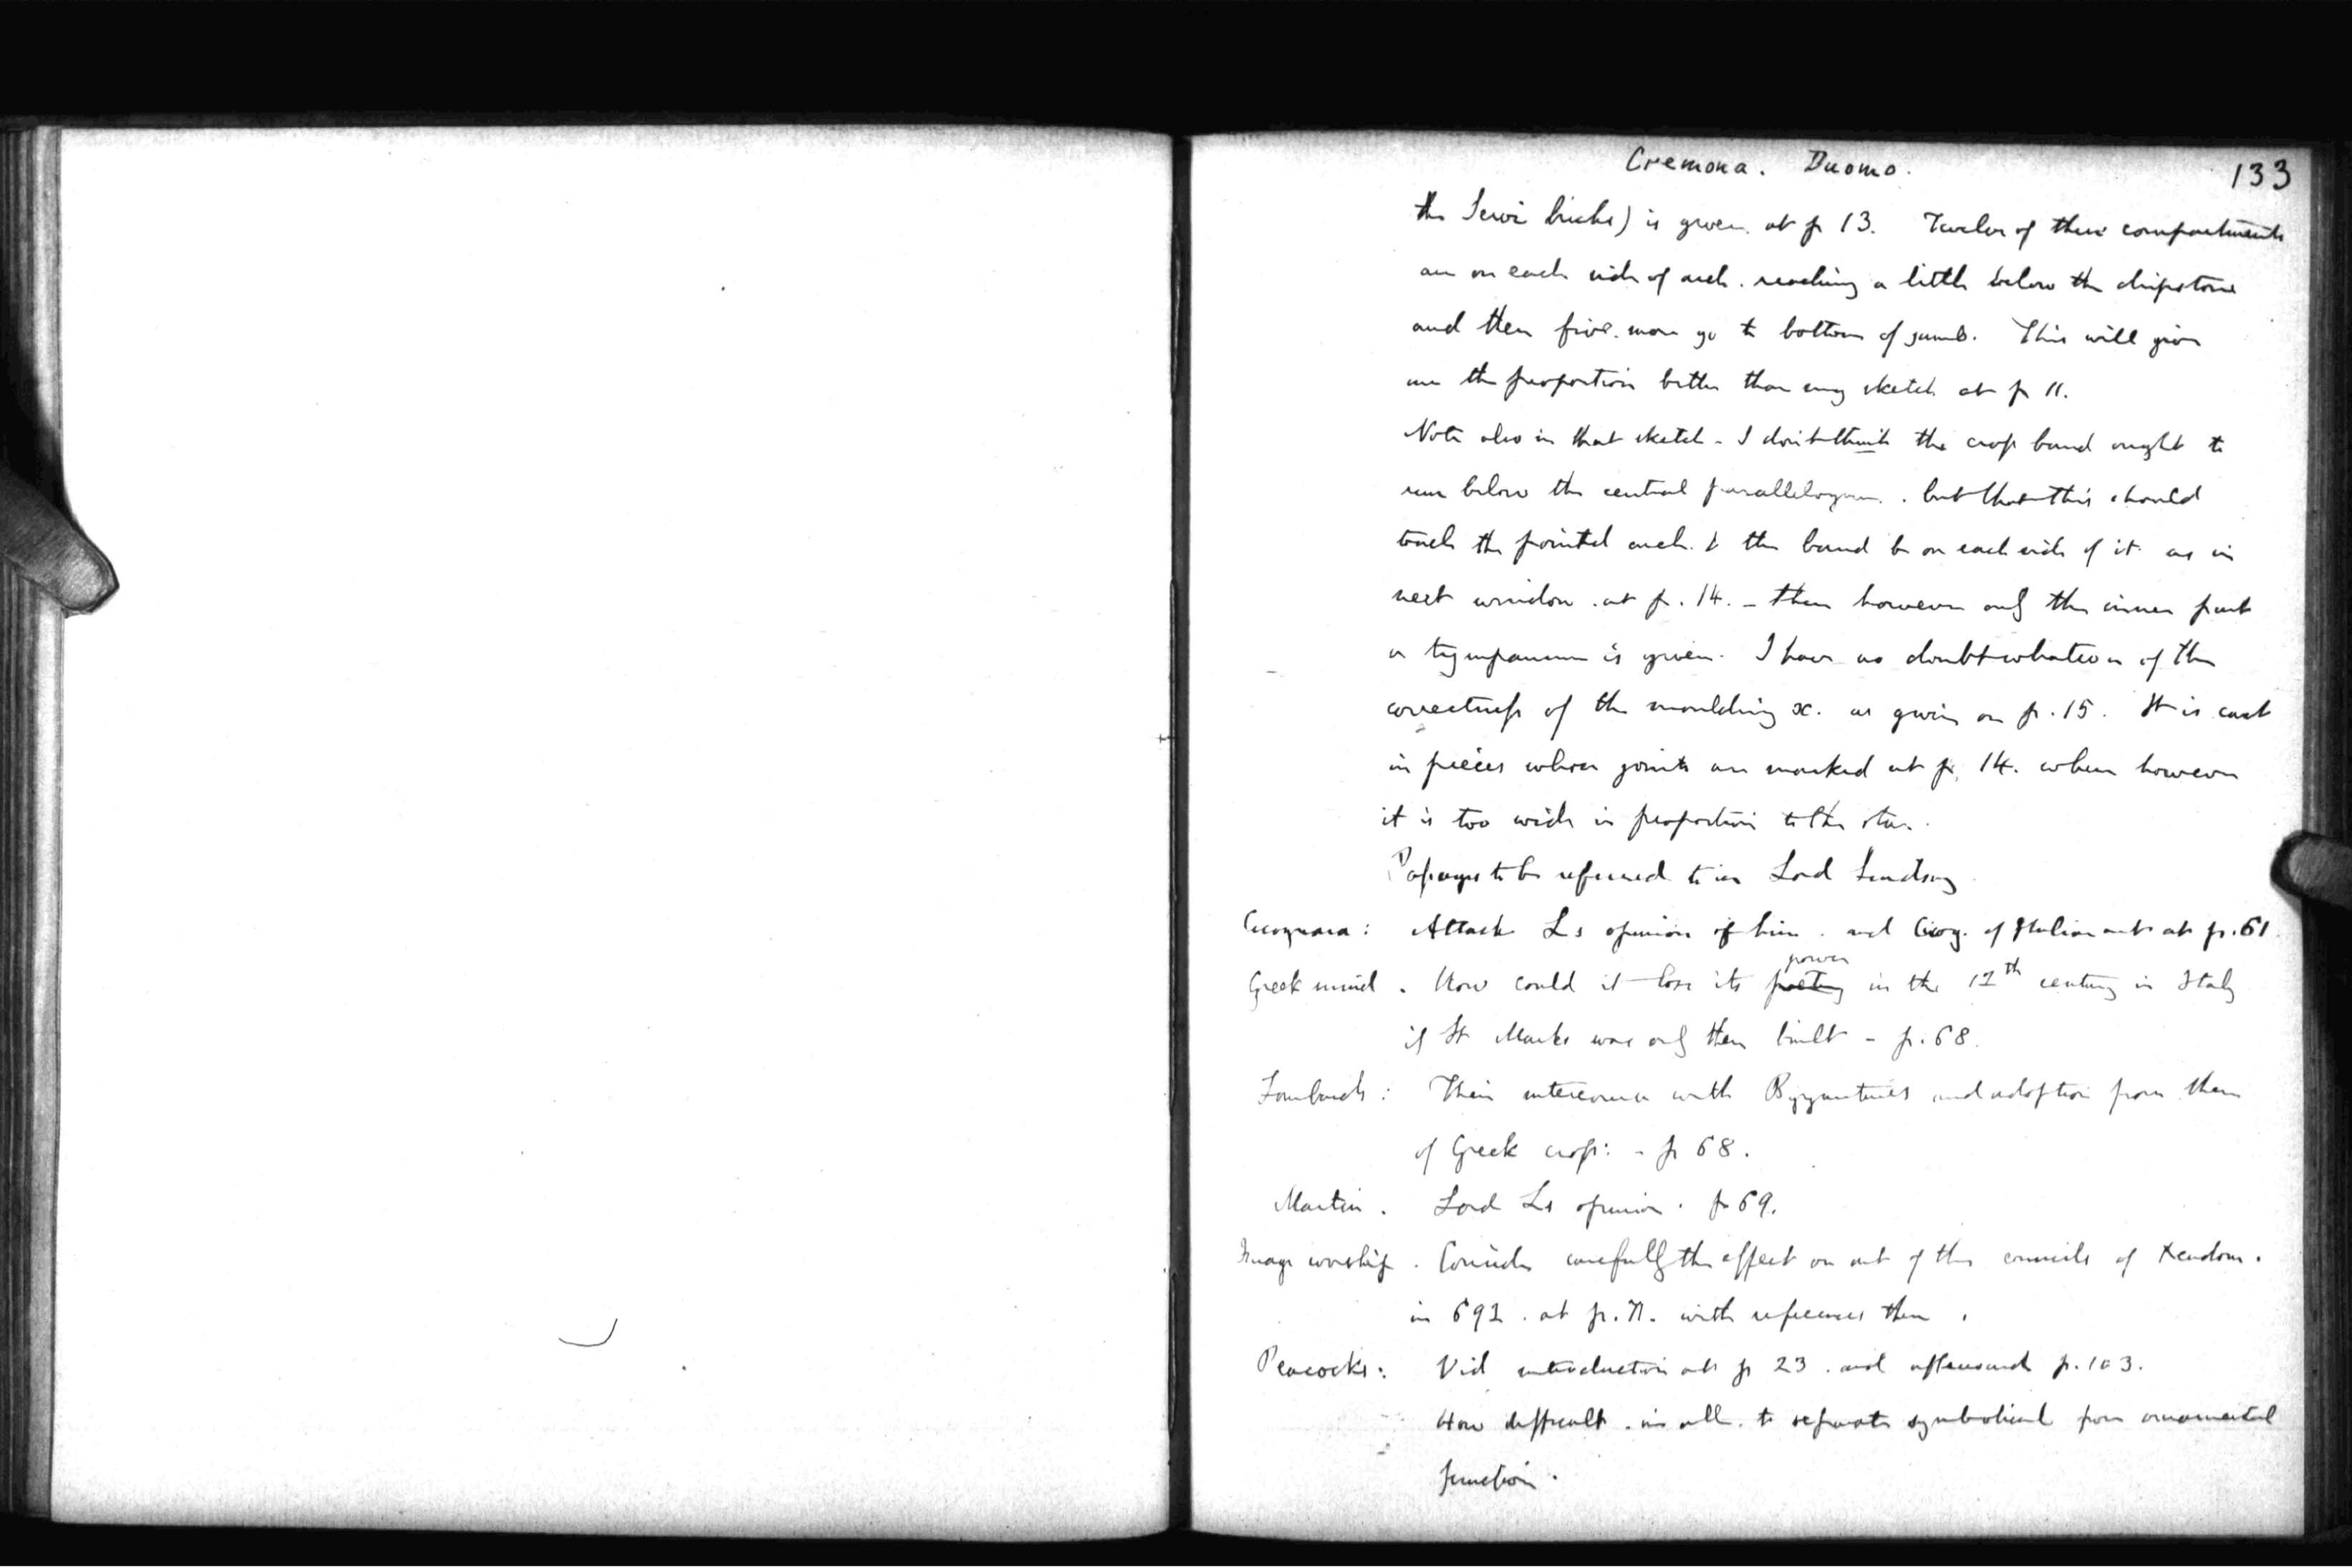 Cremona. Duomo. 133
the Servi bricks) is given at p 13. Twelve of these compartments
are on each side of arch. reaching a little below the dripstone
and then five more go to bottom of jamb. This will give
me the proportion better than my sketch at p 11.
Note also in that sketch - I don't think the cross band ought to
run below the central parallelogram. but that this should
touch the pointed arch. & the band be on each side of it as in
next window. at p. 14. - there however only the inner part
or tympanum is given. I have no doubt whatever of the
correctness of the moulding x. as given on p. 15. It is cast
in pieces whose joints are marked at p. 14. where however
it is too wide in proportion to the star.
Passages to be referred to in Lord Lindsay
Cicognara: Attack Ls opinion of him. and Cicog. of Italian art at p. 61
Greek mind. How could it lose its poetry power in the 12th century in Italy
if St Marks was only then built - p. 68.
Lombards: Their intercourse with Byzantines and adoption from them
of Greek cross: - p 68.
Martin. Lord Ls opinion. p 69.
Image worship. Consider carefully the effect on art of the councils of Xendom.
in 692. at p. 71. with references there.
Peacocks: Vid introduction at p 23. and afterward p. 103.
How difficult. in all. to separate symbolical from ornamental
function.